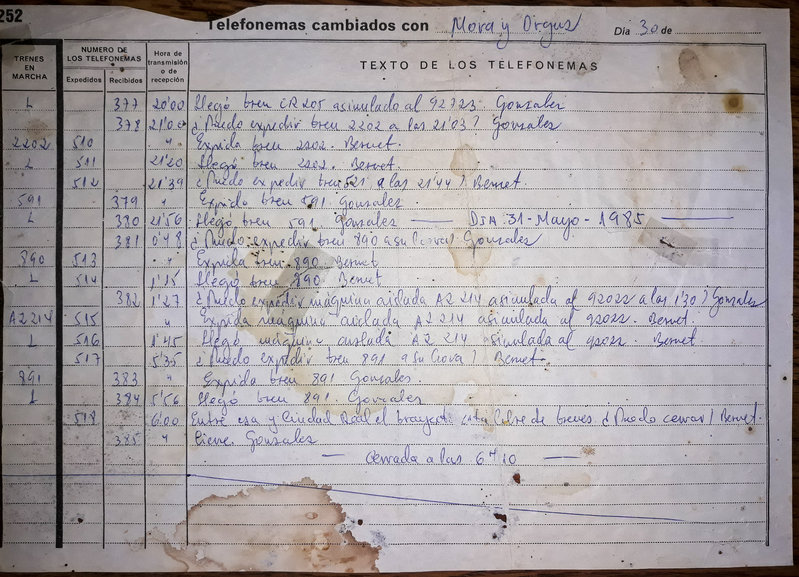 252
Telefonemas cambiados con Mora y Orgus Dia 30 de
TRENES EN MARCHA NUMERO DE LOS TELEFONEMAS Expedidos Recibidos Hora de transmisión o de recepción TEXTO DE LOS TELEFONEMAS
L 377 20'00 Llegó tren CR 205 asimulado al 92723. Gonzales
378 21'00 ¿Puedo expedir tren 2202 a las 21'03? Gonzales
2202 510 " Expida tren 2202. Bernet
L 511 21'20 Llegó tren 2202. Bernet
512 21'39 ¿Puedo expedir tren 591 a las 21'44? Bernet.
591 379 " Expida tren 591 Gonzales
L 380 21'56 Llegó tren 591 Gonzales — DIA 31-Mayo-1985 —
381 0'48 ¿Puedo expedir tren 890 a su hora? Gonzales
890 513 " Expida tren 890 Bernet
L 514 1'15 Llegó tren 890 Bernet
382 1'27 ¿Puedo expedir máquina aislada A2 214 asimulada al 92022 a las 1'30? Gonzales
A2214 515 " Expida máquina aislada A2 214 asimulada al 92022. Bernet
L 516 1'45 Llegó máquina aislada A2 214 asimulada al 92022. Bernet
517 5'35 ¿Puedo expedir tren 891 a su hora? Bernet.
891 383 " Expida tren 891 Gonzales.
L 384 5'56 Llegó tren 891 Gonzales
518 6'00 Entre esa y Ciudad Real el trayecto esta libre de trenes ¿Puedo cerrar? Bernet.
385 " Cierre. Gonzales
— Cerrada a las 6H10 —